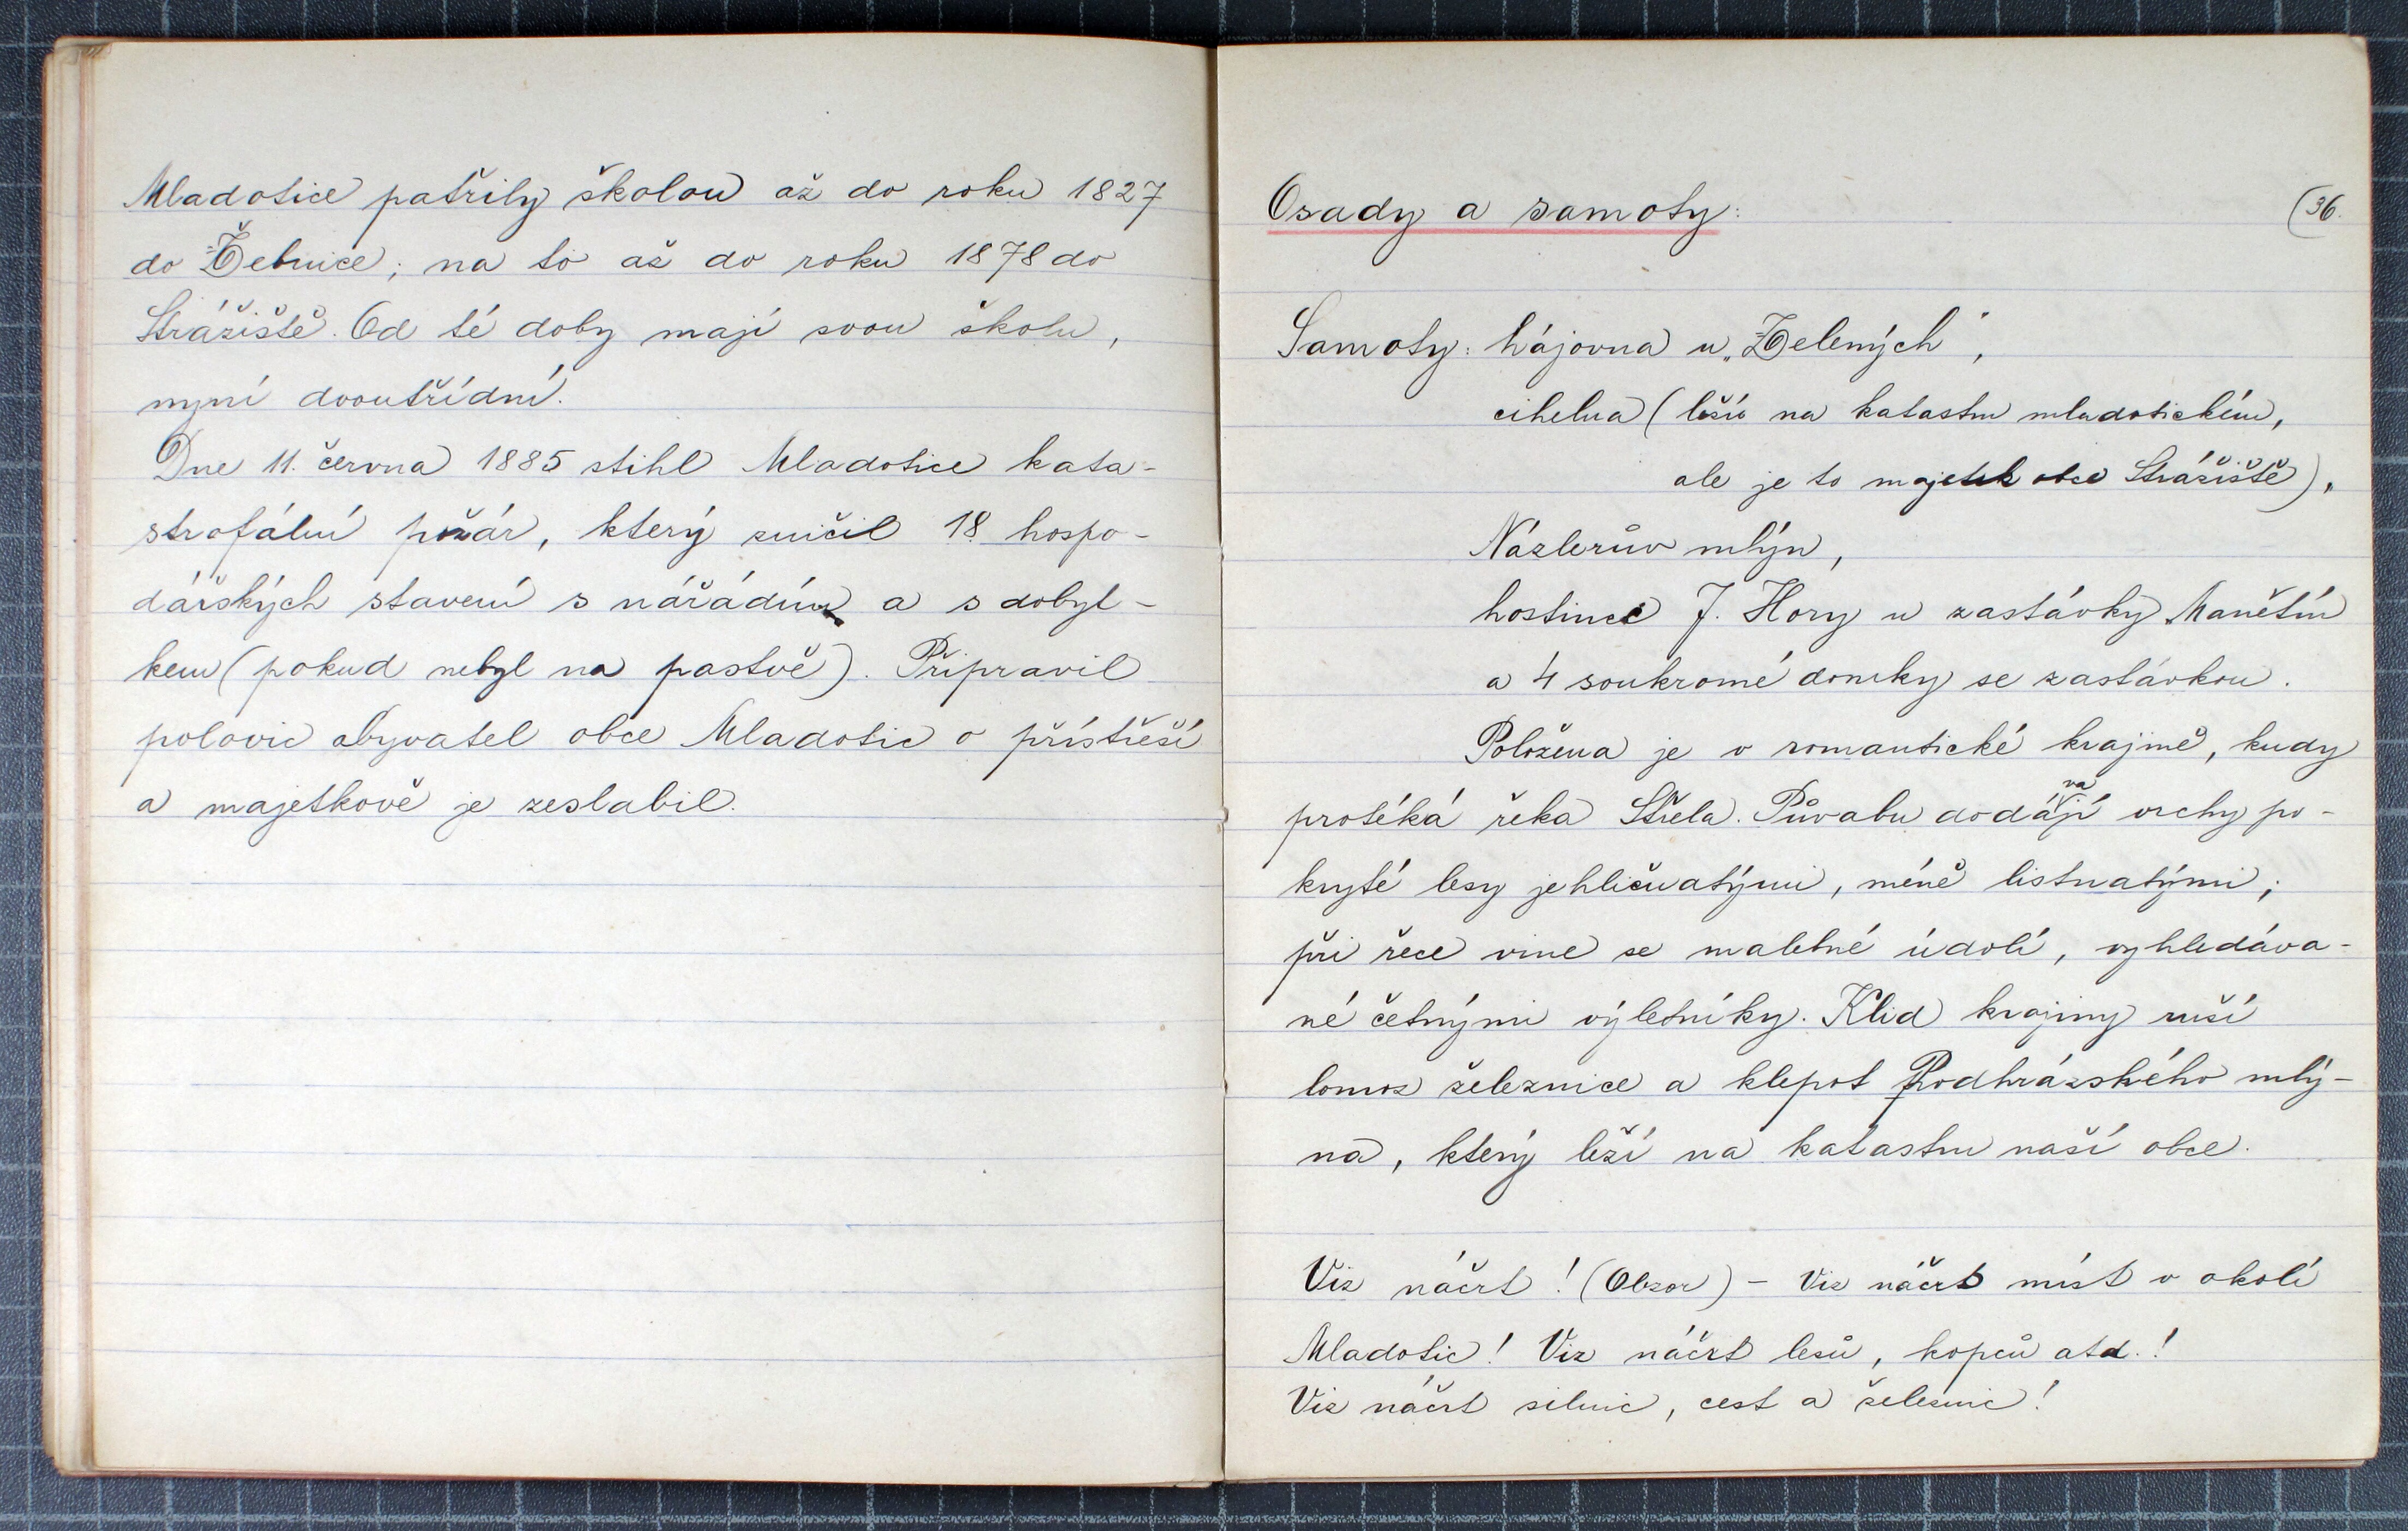 Mladotice patřily školou až do roku 1827
do Žebnice; na to až do roku 1878 do
Strážiště. Od té doby mají svou školu,
nyní dvoutřídní.
Dne 11. června 1885 stihl Mladotice kata-
strofální požár, který zničil 18 hospo-
dářských stavení s nářadím a s dobyt-
kem (pokud nebyl na pastvě). Připravil
polovic obyvatel obce Mladotic o přístřeší
a majetkově je zeslabil.
Osady a samoty:
(36.
Samoty: hájovna u „Zelených“,
cihelna (leží na katastru mladotickém,
ale je to majetek obce Strážiště),
Názlerův mlýn,
hostinec J. Hory u zastávky Manětín
a 4 soukromé domky se zastávkou.
Položena je v romantické krajině, kudy
protéká řeka Střela. Půvabu dodávají vrchy po-
kryté lesy jehličnatými, méně listnatými;
při řece vine se malebné údolí, vyhledáva-
né četnými výletníky. Klid krajiny ruší
lomoz železnice a klepot Podhrázského mlý-
na, který leží na katastru naší obce.
Viz náčrt! (Obzor) - Viz náčrt míst v okolí
Mladotic! Viz náčrt lesů, kopců atd.!
Viz náčrt silnic, cest a železnic!